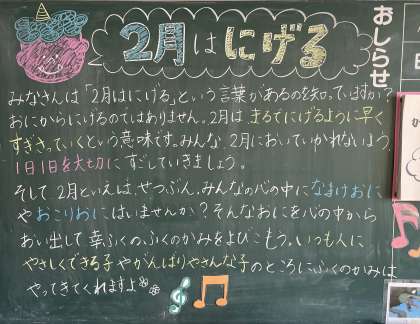 2月はにげる
おしらせ
みなさんは「2月はにげる」という言葉があるのを知っていますか?
おにからにげるのではありません。2月は まるでにげるように早く
すぎさっていくという意味です。みんな、2月においていかれないよう、
1日1日を大切に すごしていきましょう。
そして 2月といえば、せつぶん。みんなの心の中に なまけおに
や おこりおに はいませんか?そんなおにを心の中から
おい出して 幸ふくの、ふくのかみをよびこもう。いつも人に
やさしくできる子 や がんばりやさんな子 のところに ふくのかみは
やってきてくれますよ